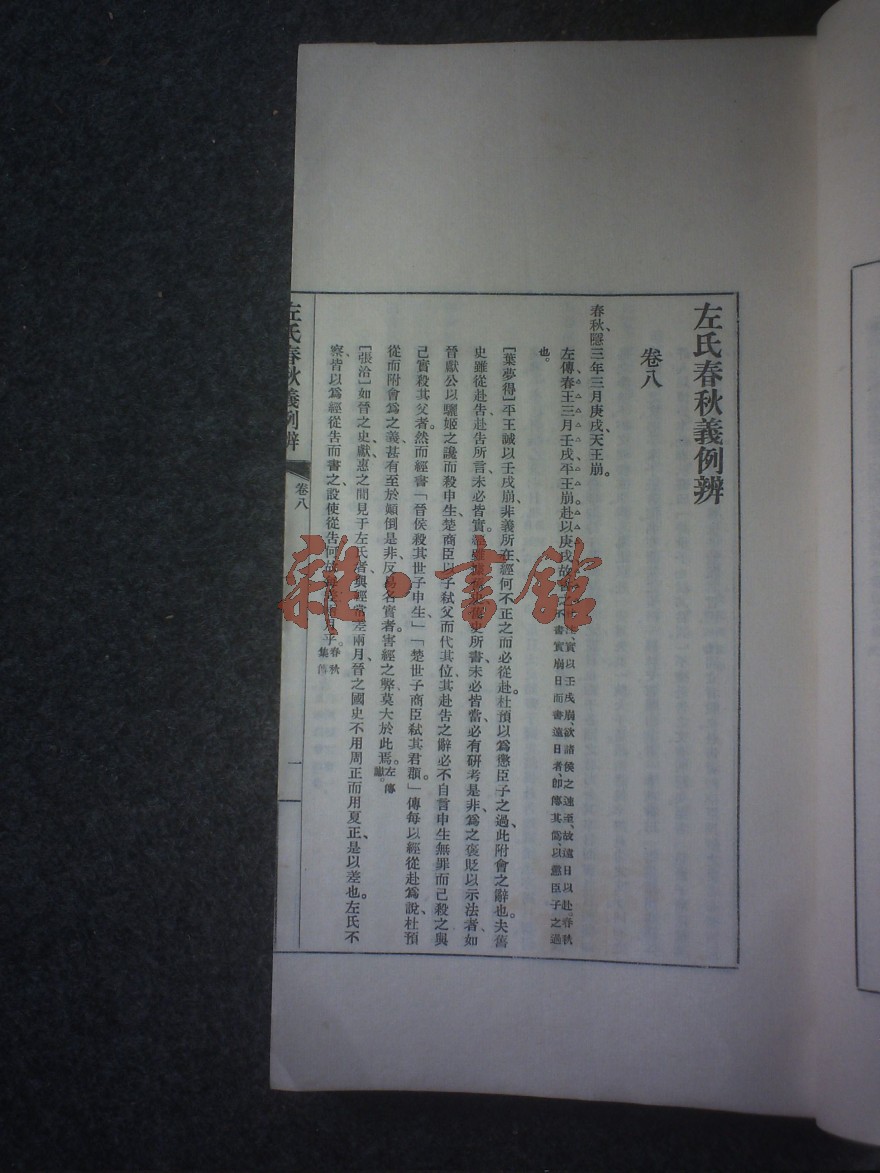 左氏春秋義例辨
卷八
春秋、隱三年三月庚戌、天王崩。
左傳、春王三月壬戌、平王崩。赴以庚戌、故書之。
實以壬戌崩、欲諸侯之速至、故遠日以赴。春秋
不書實崩日而書遠日者、卽傳其僞、以懲臣子之過
也。
[葉夢得]平王誠以壬戌崩、非義所在、經何不正之而必從赴。杜預以爲懲臣子之過、此附會之辭也。夫舊
史雖從赴告、赴告所言、未必皆實。史所書、未必皆當、必有研考是非、爲之褒貶以示法者、如
晉獻公以驪姬之讒而殺申生、楚商臣以子弑父而代其位、其赴告之辭必不自言申生無罪而己殺之與
己實殺其父者。然而經書「晉侯殺其世子申生」「楚世子商臣弑其君頵。」傳每以經從赴爲說、杜預
從而附會爲之義、甚有至於顚倒是非、反易名實者。害經之弊莫大於此焉。左傳
讞。
[張洽]如晉之史、獻惠之間見于左氏者、與經常差兩月、晉之國史不用周正而用夏正、是以差也。左氏不
察、皆以爲經從告而書之、設使從告、何月乎。春秋
集傳
左氏春秋義例辨
卷八
一
雜·書館